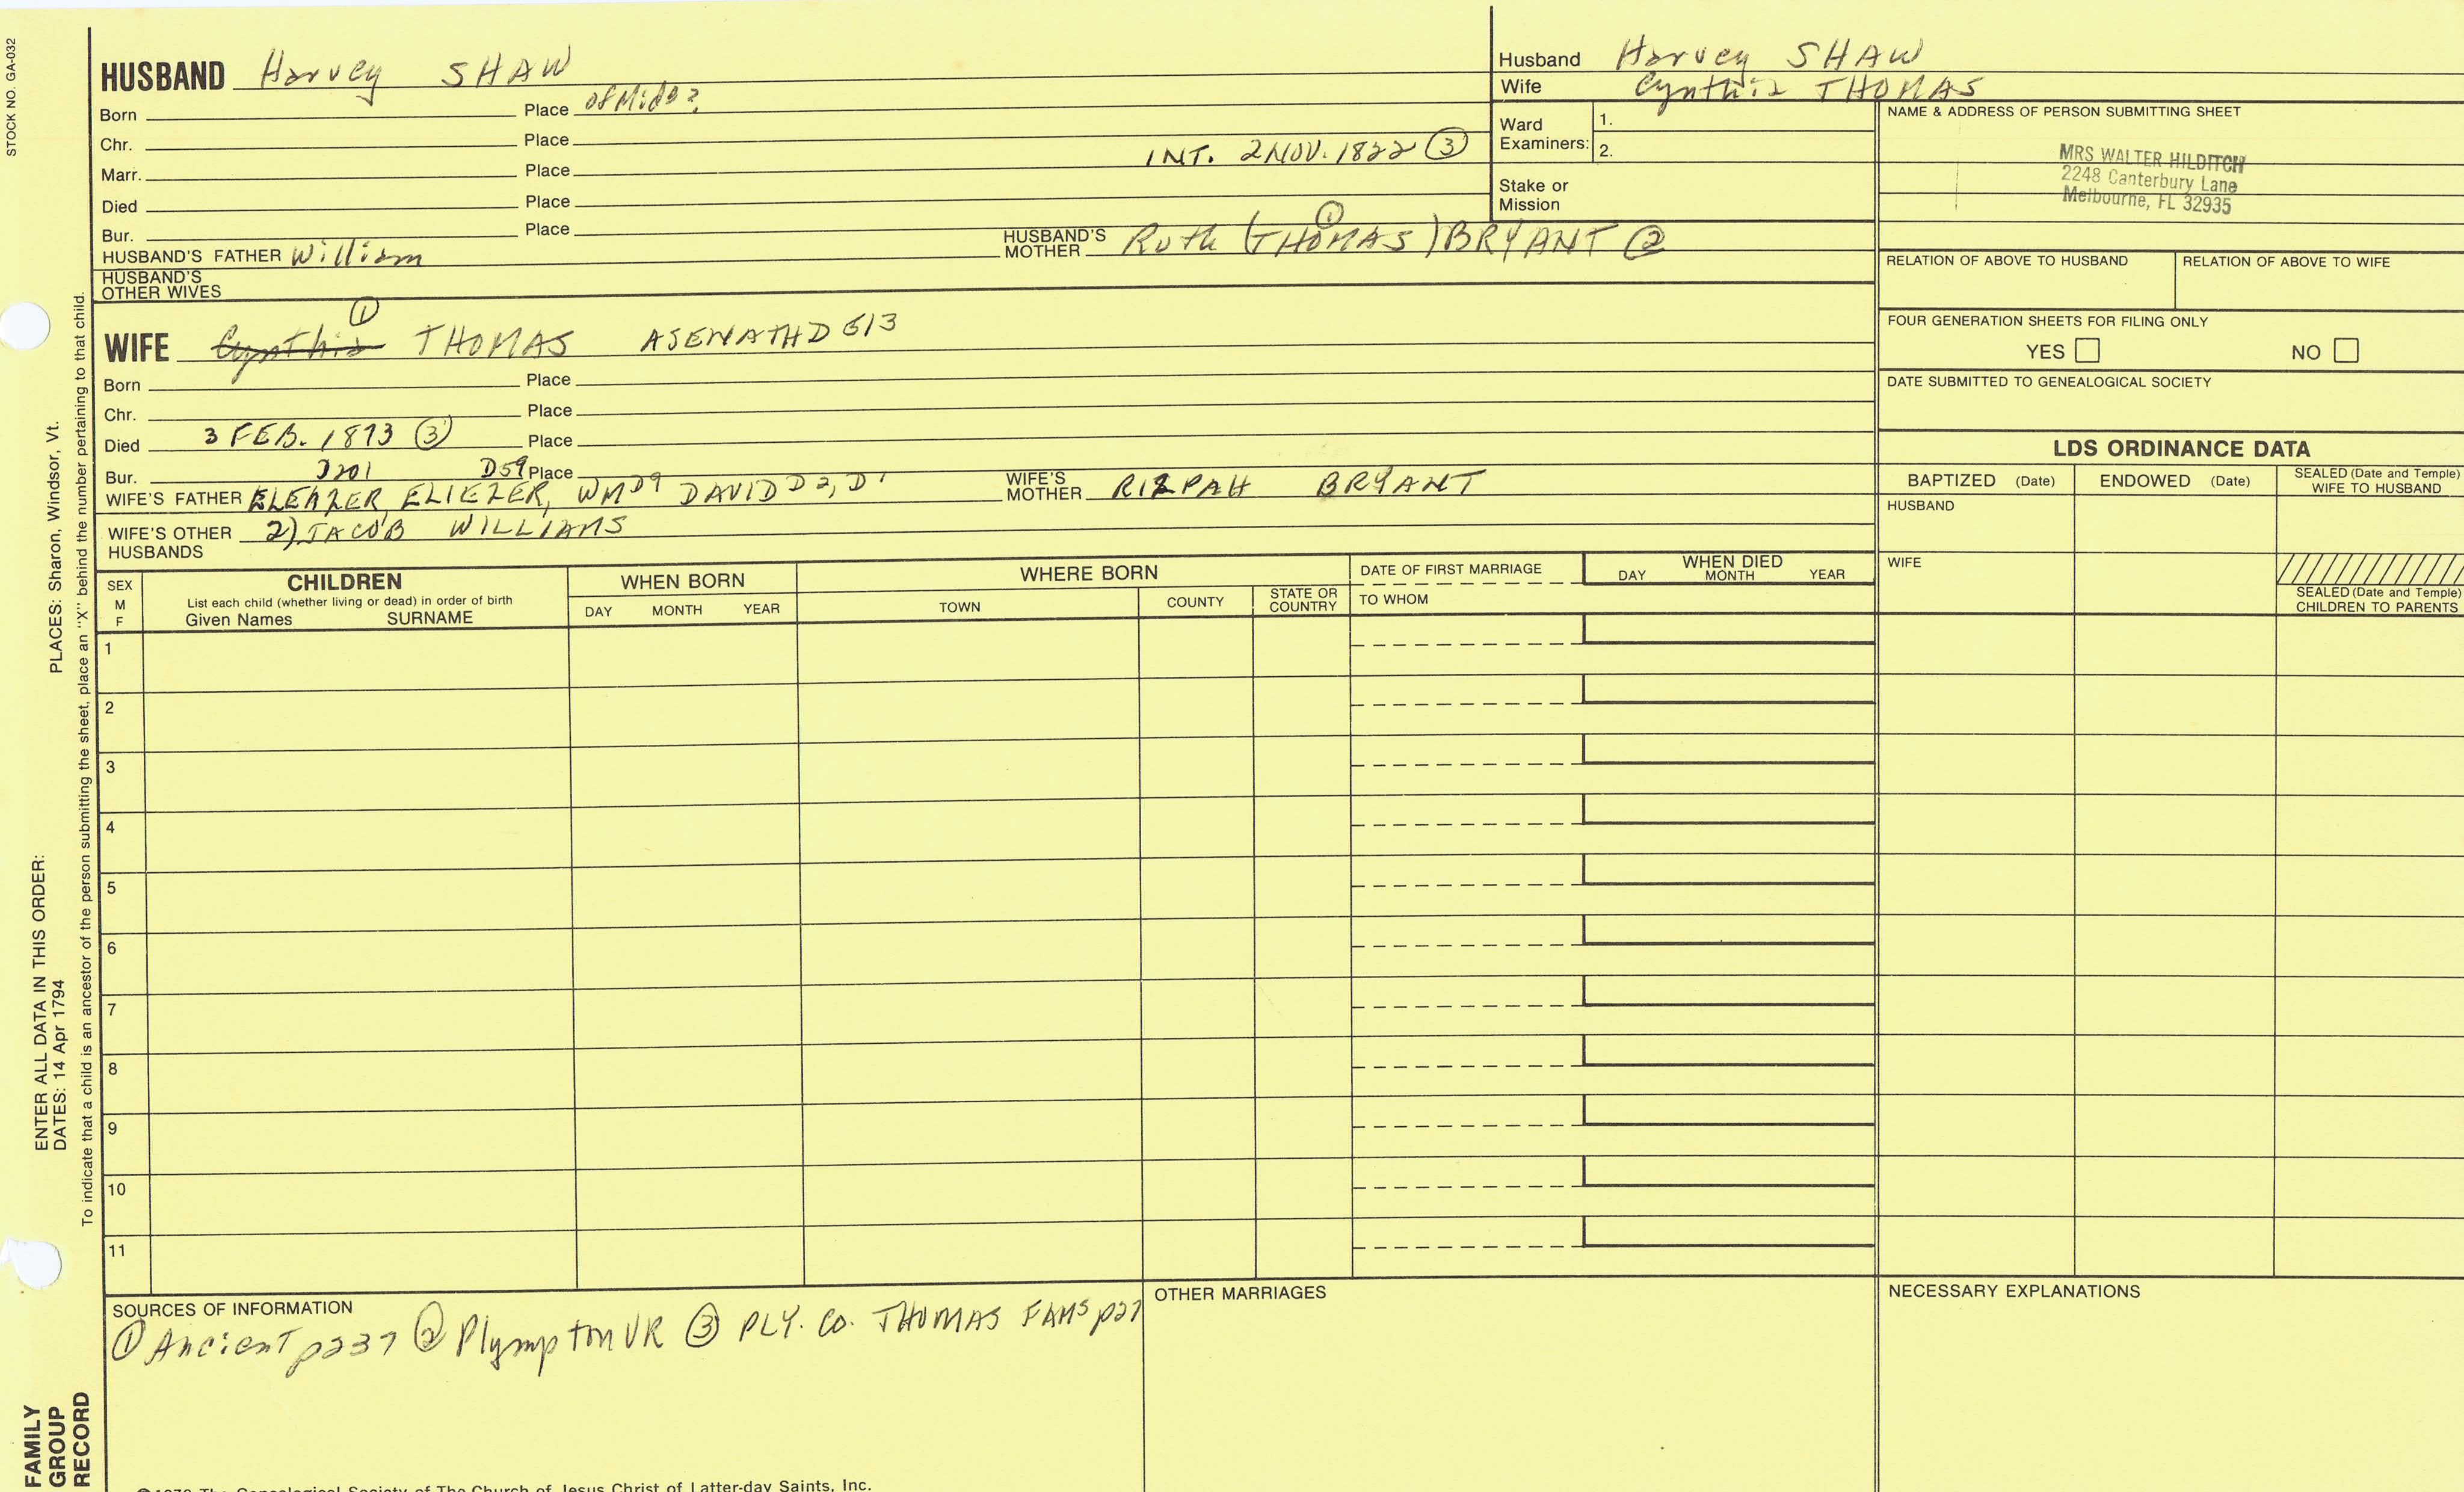 STOCK NO. GA-032
HUSBAND Harvey SHAW
Born Place of Midd?
Chr. Place
INT. 2 NOV. 1822 ③
Marr. Place
Died Place
Bur. Place
HUSBAND'S FATHER William HUSBAND'S MOTHER Ruth (THOMAS) ① BRYANT ②
HUSBAND'S OTHER WIVES
Husband Harvey SHAW
Wife Cynthia THOMAS
Ward Examiners: 1.
2.
Stake or Mission
NAME & ADDRESS OF PERSON SUBMITTING SHEET
MRS WALTER HILDITCH
2248 Canterbury Lane
Melbourne, FL 32935
RELATION OF ABOVE TO HUSBAND RELATION OF ABOVE TO WIFE
FOUR GENERATION SHEETS FOR FILING ONLY
YES NO
DATE SUBMITTED TO GENEALOGICAL SOCIETY
①
WIFE Cynthia THOMAS ASENATH D613
Born Place
Chr. Place
Died 3 FEB. 1873 ③ Place
Bur. Place
D201 D59
WIFE'S FATHER ELEAZER, ELIEZER, WM D9 DAVID D2, D1 WIFE'S MOTHER RIZPAH BRYANT
WIFE'S OTHER HUSBANDS 2) JACOB WILLIAMS
LDS ORDINANCE DATA
BAPTIZED (Date) ENDOWED (Date) SEALED (Date and Temple) WIFE TO HUSBAND
HUSBAND
WIFE
SEALED (Date and Temple) CHILDREN TO PARENTS
SEX M F
CHILDREN
List each child (whether living or dead) in order of birth
Given Names SURNAME
WHEN BORN
DAY MONTH YEAR
WHERE BORN
TOWN COUNTY STATE OR COUNTRY
DATE OF FIRST MARRIAGE
TO WHOM
WHEN DIED
DAY MONTH YEAR
1
2
3
4
5
6
7
8
9
10
11
SOURCES OF INFORMATION
① Ancient p237 ② Plympton VR ③ PLY. CO. THOMAS FAMS p27
OTHER MARRIAGES
NECESSARY EXPLANATIONS
The Genealogical Society of The Church of Jesus Christ of Latter-day Saints, Inc.
ENTER ALL DATA IN THIS ORDER:
DATES: 14 Apr 1794
PLACES: Sharon, Windsor, Vt.
To indicate that a child is an ancestor of the person submitting the sheet, place an "X" behind the number pertaining to that child.
FAMILY
GROUP
RECORD